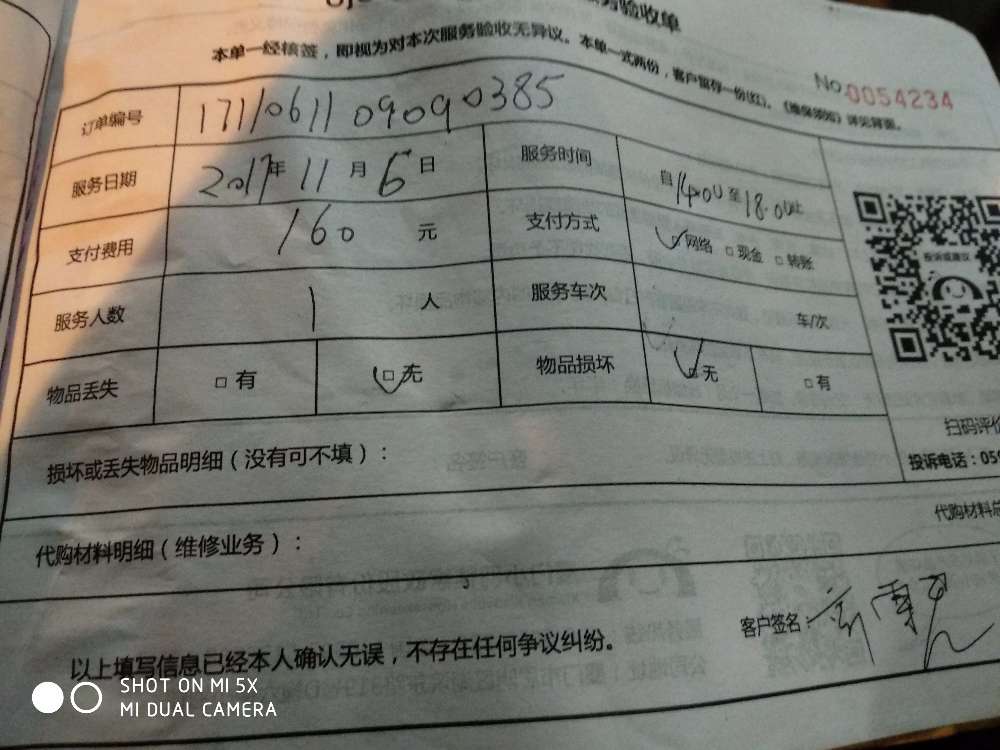 务验收单
本单一经核签，即视为对本次服务验收无异议。本单一式两份，客户留存一份(红)。《维保须知》详见背面。
No.0054234
订单编号 1711061109090385
服务日期 2017年 11月 6日 服务时间 自14:00至18:00止
支付费用 160 元 支付方式 网络 现金 转账
服务人数 1 人 服务车次 车/次
物品丢失 有 无 物品损坏 无 有
投诉或建议
扫码评价
损坏或丢失物品明细（没有可不填）：
投诉电话：059
代购材料明细（维修业务）：
代购材料总
以上填写信息已经本人确认无误，不存在任何争议纠纷。
客户签名：
SHOT ON MI 5X
MI DUAL CAMERA